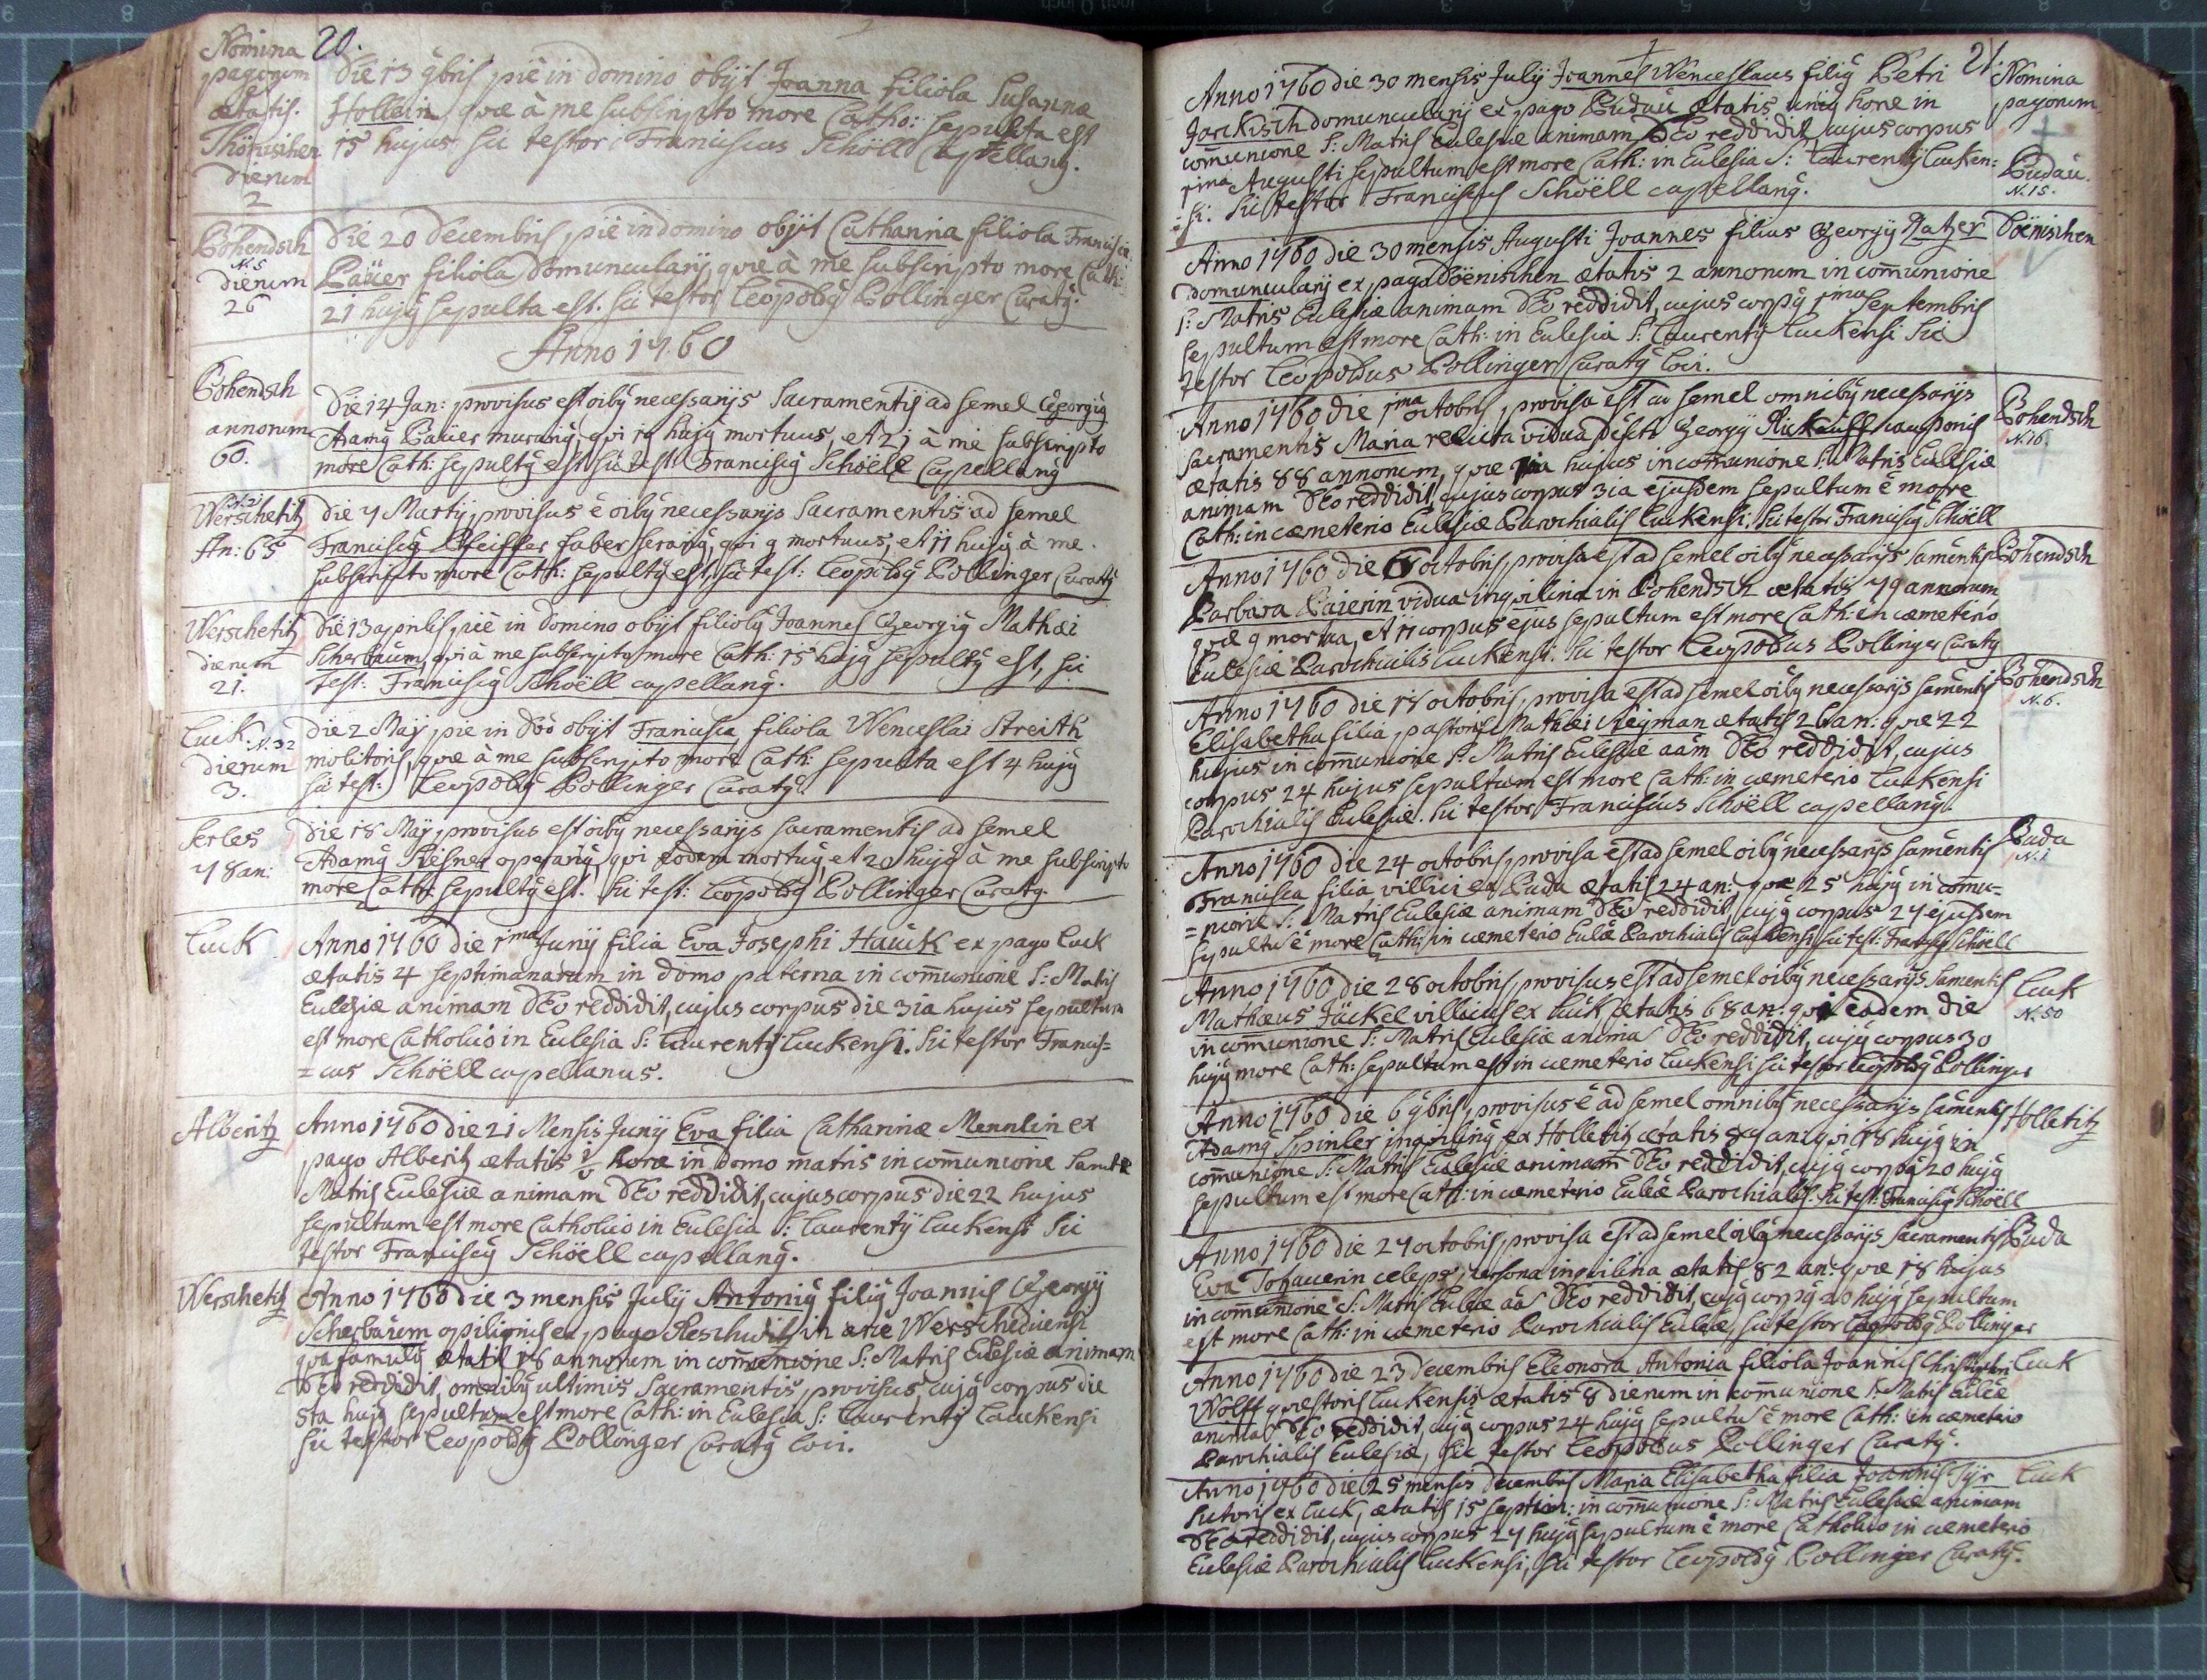 20.
Nomina
pagorum
et
ætatis.
Thönischen
dierum
2
Die 13 9bris pie in domino obijt Joanna filiola Susannæ
Hollein, quæ à me subscripto more Catho: sepulta est
15 hujus sic testor Franciscus Schöell Capellang.
Pohendsch
N. 5
dierum
26
Die 20 Decembris pie in domino obijt Catharina filiola Francisci
Paüer filiola domuncularij, quæ à me subscripto more Cath:
21 hujg sepulta est. sic testor Leopoldg Pollinger Curatg.
Anno 1760
Pohendsch
annorum
60.
Die 14 Jan: provisus est oibg necessarijs Sacramentis ad semel Georgig
Adamg Paüer murarig, qui 19 hujg mortuus, et 21 à me subscripto
more Cath: sepultg est sic test: Franciscg Schöell Capellang
Werschetitz
An: 65
die 7 Martij, provisus è oibg necessarijs Sacramentis ad semel
Franciscg Pfeiffer faber serarig, qui 9 mortuus, et 11 hujg à me
subscripto more Cath: sepultg est, sic test: Leopoldg Pollinger Curatg
Werschetitz
dierum
21.
Die 13 aprilis pie in domino obijt filiolg Joannes Georgig Mathæi
Scherbaum, qui à me subscripto more Cath: 15 hujg sepultg est, sic
test: Franciscg Schöell capellang.
Luck N. 32
dierum
3.
Die 2 Maij pie in dno obijt Francisca filiola Wenceslai Streith
molitoris, quæ à me subscripto more Cath: sepulta est 4 hujg
sic test: Leopoldg Pollinger Curatg.
Serles
78 an:
Die 18 Maij, provisus est oibg necessarijs sacramentis ad semel
Adamg Riesner operarig, qui eodem mortug, et 20 hujg à me subscripto
more Cath: sepultg est. Sic test: Leopoldg Pollinger Curatg.
Luck
Anno 1760 die 1ma Junij filia Eva Josephi Hauck ex pago Luck
ætatis 4 septimanarum in domo paterna in comunione S: Matris
Eclesiæ animam DEo reddidit, cujus corpus die 3ia hujus sepultum
est more Catholico in Eclesia S: Laurentij Luckensi. Sic testor Francis=
=cus Schöell capellanus.
Alberitz
Anno 1760 die 21 Mensis Junij Eva filia Catharinæ Mennlin ex
pago Alberitz ætatis horæ in domo matris in comunione Sanctæ
Matris Eclesiæ animam DEo reddidit, cujus corpus die 22 hujus
sepultum est more Catholico in Eclesia S: Laurentij Luckensi Sic
testor Franciscg Schöell capellang.
Werschetitz
Anno 1760 die 3 mensis Julij Antonig filig Joannis Georgij
Scherbaum opilionis ex pago Reschwitz in Werschediensi
qua famulg ætatis 18 annorum in comunione S: Matris Eclesiæ animam
DEo reddidit, omnibg ultimis Sacramentis provisus, cujg corpus die
5ta hujg sepultum est more Cath: in Eclesia S: Laurentij Luckensi
sic testor Leopoldg Pollinger Curatg loci.
21.
Nomina
pagorum
Pudau.
N. 15.
Anno 1760 die 30 mensis Julij Joannes Wenceslaus filig Petri
Jarckisch domuncularij ex pago Pudau ætatis unig horæ in
comunione S: Matris Eclesiæ animam DEo reddidit, cujus corpus
1ma Augusti sepultum est more Cath: in Eclesia S: Laurentij Lucken:
=si. Sic testor Franciscus Schöell capellang.
Döenischen
Anno 1760 die 30 mensis Augusti Joannes filius Georgij Ratzer
domuncularij ex pago Döenischen ætatis 2 annorum in comunione
S: Matris Eclesiæ animam DEo reddidit, cujus corpg 1ma Septembris
sepultum est more Cath: in Eclesia S: Laurentij Luckensi Sic
testor Leopoldus Pollinger Curatg loci.
Pohendsch
N. 16
Anno 1760 die 1ma octobris, provisa est ad semel omnibg necessarijs
sacramentis Maria relicta vidua Georgij Rickauff cauponis
ætatis 88 annorum, quæ 1ma hujus in comunione S: Matris Eclesiæ
animam DEo reddidit, cujus corpus 3ia ejusdem sepultum è more
Cath: in cæmeterio Eclesiæ Parochialis Luckensi. Sic testor Franciscg Schöell
Pohendsch
Anno 1760 die 6 octobris, provisa est ad semel oibg necessarijs samentis
Barbara Paierin vidua inquilina in Pohendsch ætatis 79 annorum
quæ 9 mortua, et 11 corpus ejus sepultum est more Cath: in cæmeterio
Eclesiæ Parochialis Luckensi. Sic testor Leopoldus Pollinger Curatg
Pohendsch
N. 6.
Anno 1760 die 18 octobris, provisa est ad semel oibg necessarijs samentis
Elisabetha filia pastoris Mathæi Riegman ætatis 26 an: quæ 22
hujus in comunione S: Matris Eclesiæ aam DEo reddidit, cujus
corpus 24 hujus sepultum est more Cath: in cæmeterio Luckensi
Parochialis Eclesiæ. Sic testor Franciscus Schöell capellang
Puda
N. 1
Anno 1760 die 24 octobris, provisa est ad semel oibg necessarijs samentis
Francisca filia villici ex Puda ætatis 24 an:, quæ 25 hujg in comu=
=nione S: Matris Eclesiæ animam DEo reddidit, cujg corpus 27 ejusdem
sepultu è more Cath: in cæmeterio Eclæ Parochialis Luckensi sic test: Franciscg Schöell
Luck
N. 50
Anno 1760 die 28 octobris, provisus est ad semel oibg necessarijs samentis
Mathæus Jäckel villicus ex Luck ætatis 68 an: qui eadem die
in comunione S: Matris Eclesiæ anima DEo reddidit, cujg corpus 30
hujg more Cath: sepultum est in cæmeterio Luckensi sic testor Leopoldg Pollinger
Holletitz
Anno 1760 die 6 9bris, provisus è ad semel omnibg necessarijs samentis
Adamg Spinler inquiling ex Holletitz ætatis 84 an: qui 18 hujg in
comunione S: Matris Eclesiæ animam DEo reddidit, cujg corpg 20 hujg
sepultum est more Cath: in cæmeterio Eclæ Parochialis. Sic test: Franciscg Schöell
Puda
Anno 1760 die 27 octobris, provisa est ad semel oibg necessarijs Sacramentis
Eva Tofauerin celeps persona inquilina ætatis 82 an: quæ 18 hujus
in comunione S: Matris Eclæ aa DEo reddidit, cujg corpg 20 hujg sepultum
est more Cath: in cæmeterio Parochialis Eclæ, sic testor Leopoldg Pollinger
Luck
Anno 1760 die 23 decembris Eleonora Antonia filiola Joannis Christophori
Wolff quæstoris Luckensis ætatis 8 dierum in comunione S: Matris Eclæ
anima DEo reddidit, cujg corpus 24 hujg sepultu è more Cath: in cæmeterio
Parochialis Eclesiæ, sic testor Leopoldus Pollinger Curatg.
Luck
Anno 1760 die 25 mensis decembris Maria Elisabetha filia Joannis Syr
sutoris ex Luck, ætatis 15 septim: in comunione S: Matris Eclesiæ animam
DEo reddidit, cujus corpus 27 hujg sepultum è more Catholico in cæmeterio
Eclesiæ Parochialis Luckensi, sic testor Leopoldg Pollinger Curatg.